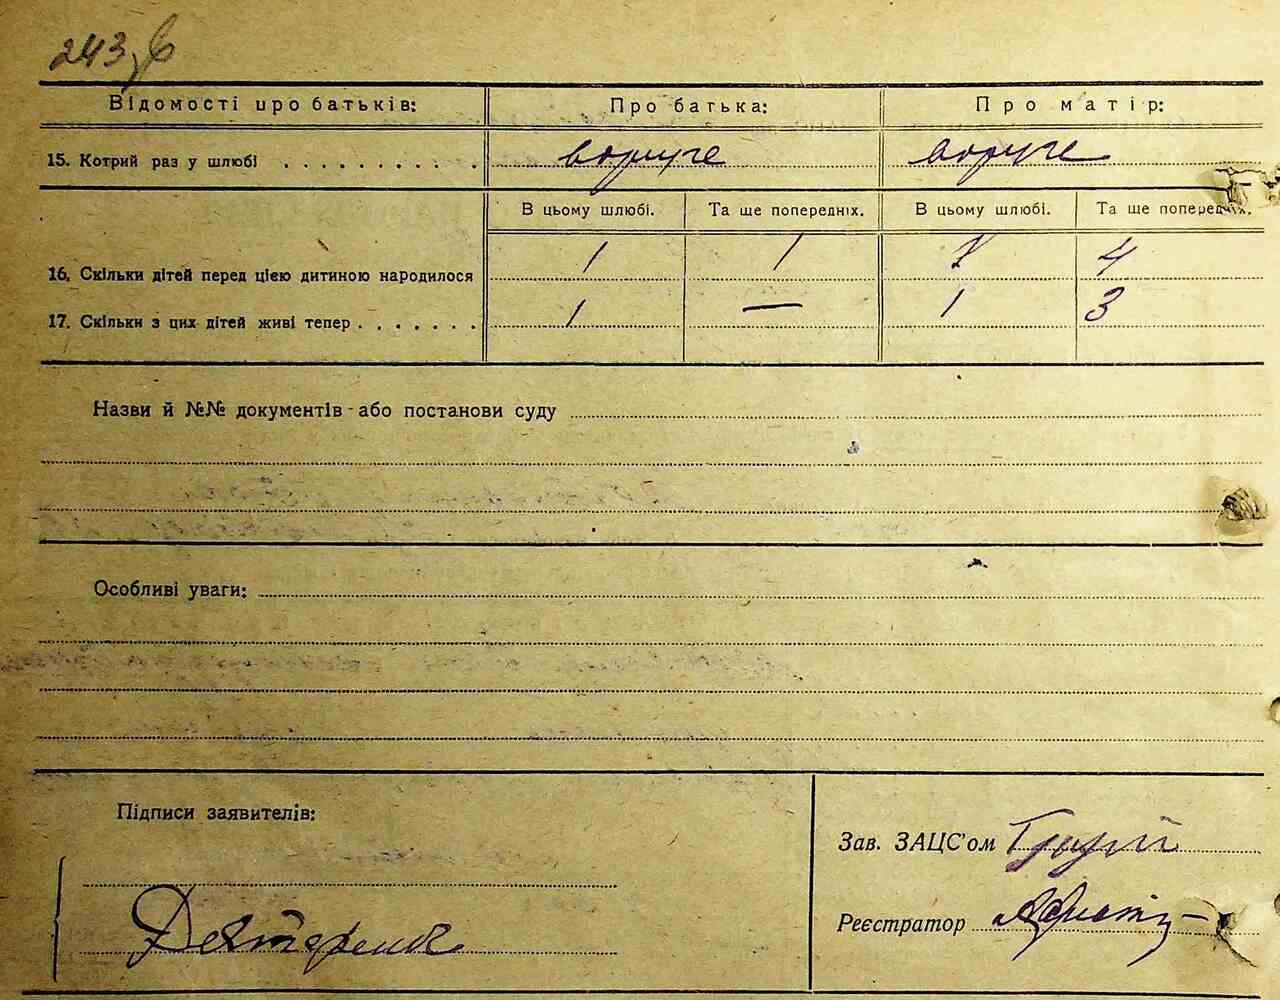 243
Відомості про батьків: Про батька: Про матір:
15. Котрий раз у шлюбі . . . . . . . . . . вдруге вдруге
В цьому шлюбі. Та ще попередніх. В цьому шлюбі. Та ще попередніх.
16. Скільки дітей перед цією дитиною народилося 1 1 1 4
17. Скільки з цих дітей живі тепер . . . . . . . 1 — 1 3
Назви й №№ документів або постанови суду
Особливі уваги:
Підписи заявителів:
Зав. ЗАЦС'ом
Реєстратор